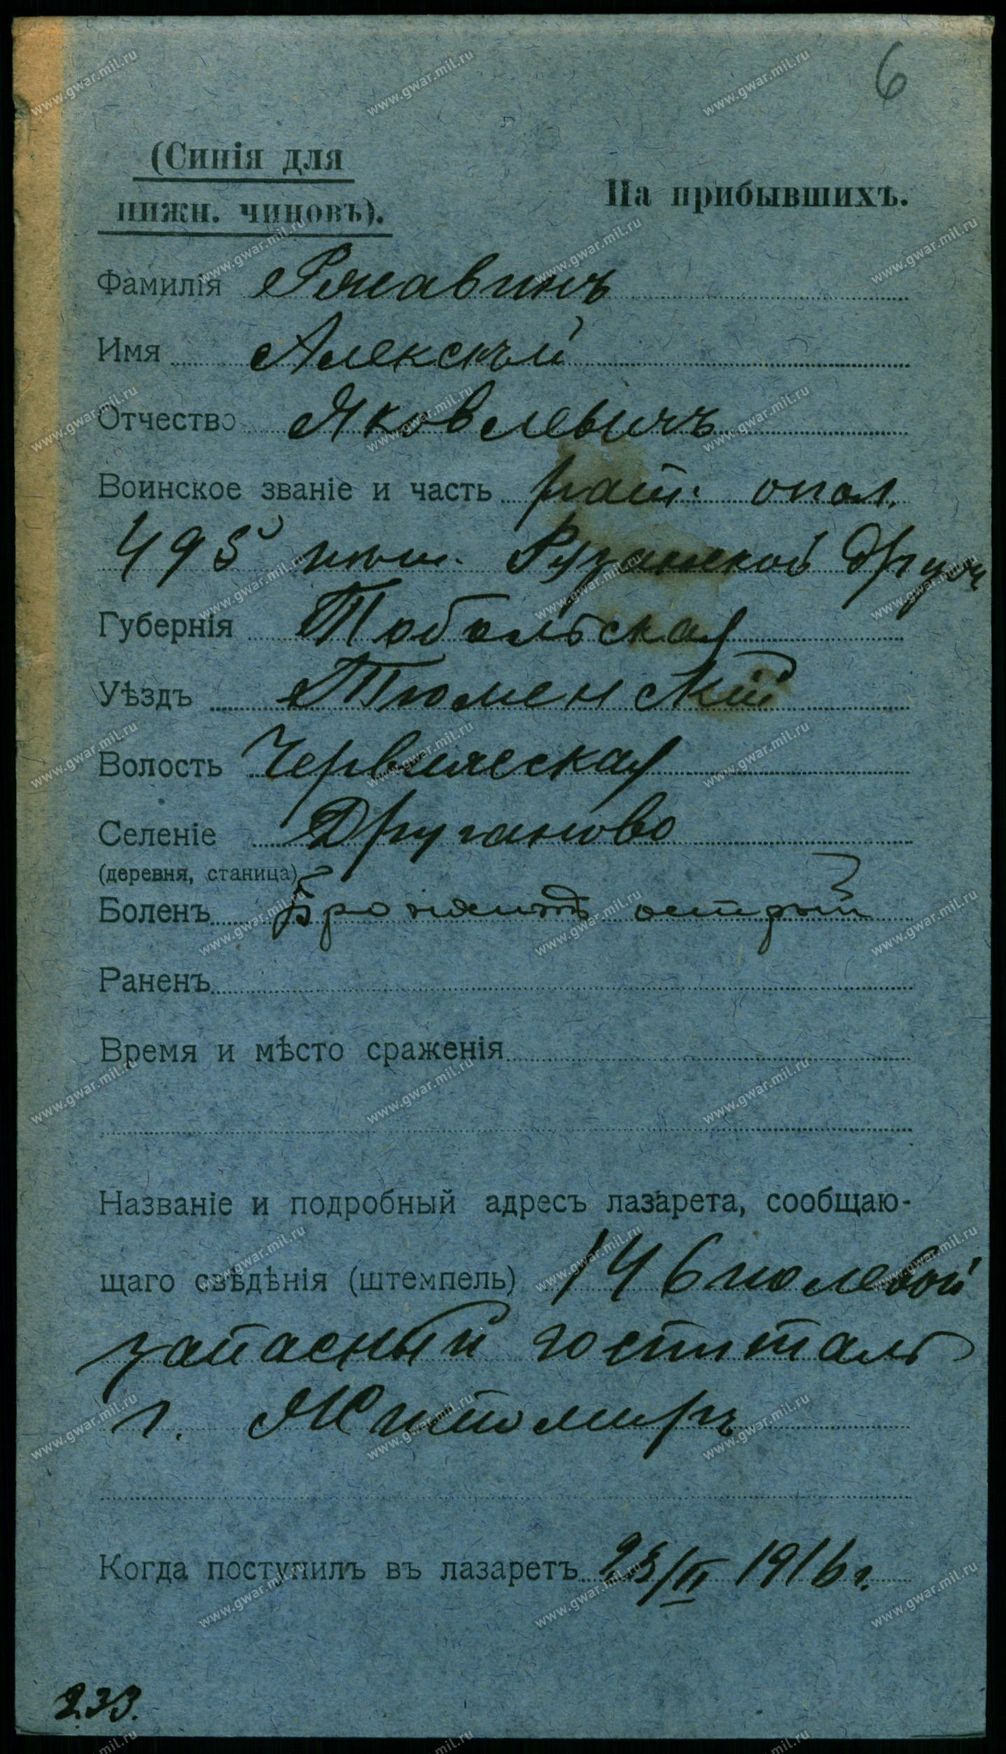 6
(Синія для
нижн. чиновъ).
На прибывшихъ.
Фамилія Ржавинъ
Имя Алексѣй
Отчество Яковлевичъ
Воинское званіе и часть рат. опол.
495 пѣш. друж
Губернія Тобольская
Уѣздъ Тюменскій
Волость
Селеніе Друганово
(деревня, станица)
Боленъ острый
Раненъ
Время и мѣсто сраженія
Названіе и подробный адресъ лазарета, сообщаю-
щаго свѣдѣнія (штемпель) 146 полевой
запасный госпиталь
г. Житомиръ
Когда поступилъ въ лазаретъ 23/II 1916 г.
233.
www.gwar.mil.ru